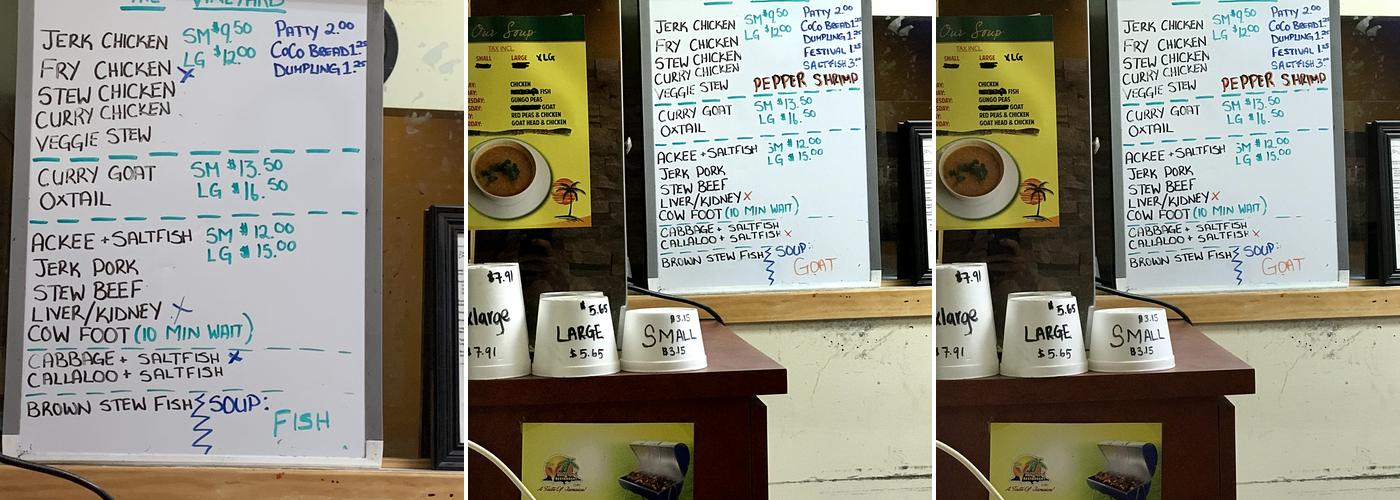 THE VINEYARD
JERK CHICKEN SM $9.50 PATTY 2.00
LG $12.00 COCO BREAD 1.25
FRY CHICKEN X DUMPLING 1.25
STEW CHICKEN
CURRY CHICKEN
VEGGIE STEW
CURRY GOAT SM $13.50
OXTAIL LG $16.50
ACKEE + SALTFISH SM $12.00
LG $15.00
JERK PORK
STEW BEEF
LIVER/KIDNEY X
COW FOOT (10 MIN WAIT)
CABBAGE + SALTFISH X
CALLALOO + SALTFISH
BROWN STEW FISH SOUP:
FISH
Our Soup
TAX INCL.
SMALL LARGE XLG
CHICKEN
FISH
GUNGO PEAS
GOAT
RED PEAS & CHICKEN
GOAT HEAD & CHICKEN
JERK CHICKEN SM $9.50 PATTY 2.00
LG $12.00 COCO BREAD 1.25
FRY CHICKEN DUMPLING 1.25
STEW CHICKEN FESTIVAL 1.25
CURRY CHICKEN SALTFISH 3.00
VEGGIE STEW PEPPER SHRIMP
CURRY GOAT SM $13.50
OXTAIL LG $16.50
ACKEE + SALTFISH SM $12.00
JERK PORK LG $15.00
STEW BEEF
LIVER/KIDNEY X
COW FOOT (10 MIN WAIT)
CABBAGE + SALTFISH
CALLALOO + SALTFISH X
BROWN STEW FISH SOUP:
GOAT
$7.91
xlarge
$7.91
$5.65
LARGE
$5.65
$3.15
SMALL
$3.15
A Taste Of Jamaica!
Our Soup
TAX INCL.
SMALL LARGE XLG
CHICKEN
FISH
GUNGO PEAS
GOAT
RED PEAS & CHICKEN
GOAT HEAD & CHICKEN
JERK CHICKEN SM $9.50 PATTY 2.00
LG $12.00 COCO BREAD 1.25
FRY CHICKEN DUMPLING 1.25
STEW CHICKEN FESTIVAL 1.25
CURRY CHICKEN SALTFISH 3.00
VEGGIE STEW PEPPER SHRIMP
CURRY GOAT SM $13.50
OXTAIL LG $16.50
ACKEE + SALTFISH SM $12.00
JERK PORK LG $15.00
STEW BEEF
LIVER/KIDNEY X
COW FOOT (10 MIN WAIT)
CABBAGE + SALTFISH
CALLALOO + SALTFISH X
BROWN STEW FISH SOUP:
GOAT
$7.91
xlarge
$7.91
$5.65
LARGE
$5.65
$3.15
SMALL
$3.15
A Taste Of Jamaica!